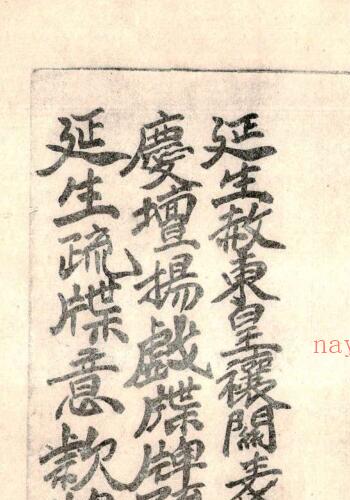 延生赦東皇禳關
慶壇揚戲牒牌
延生疏牒意款
nay